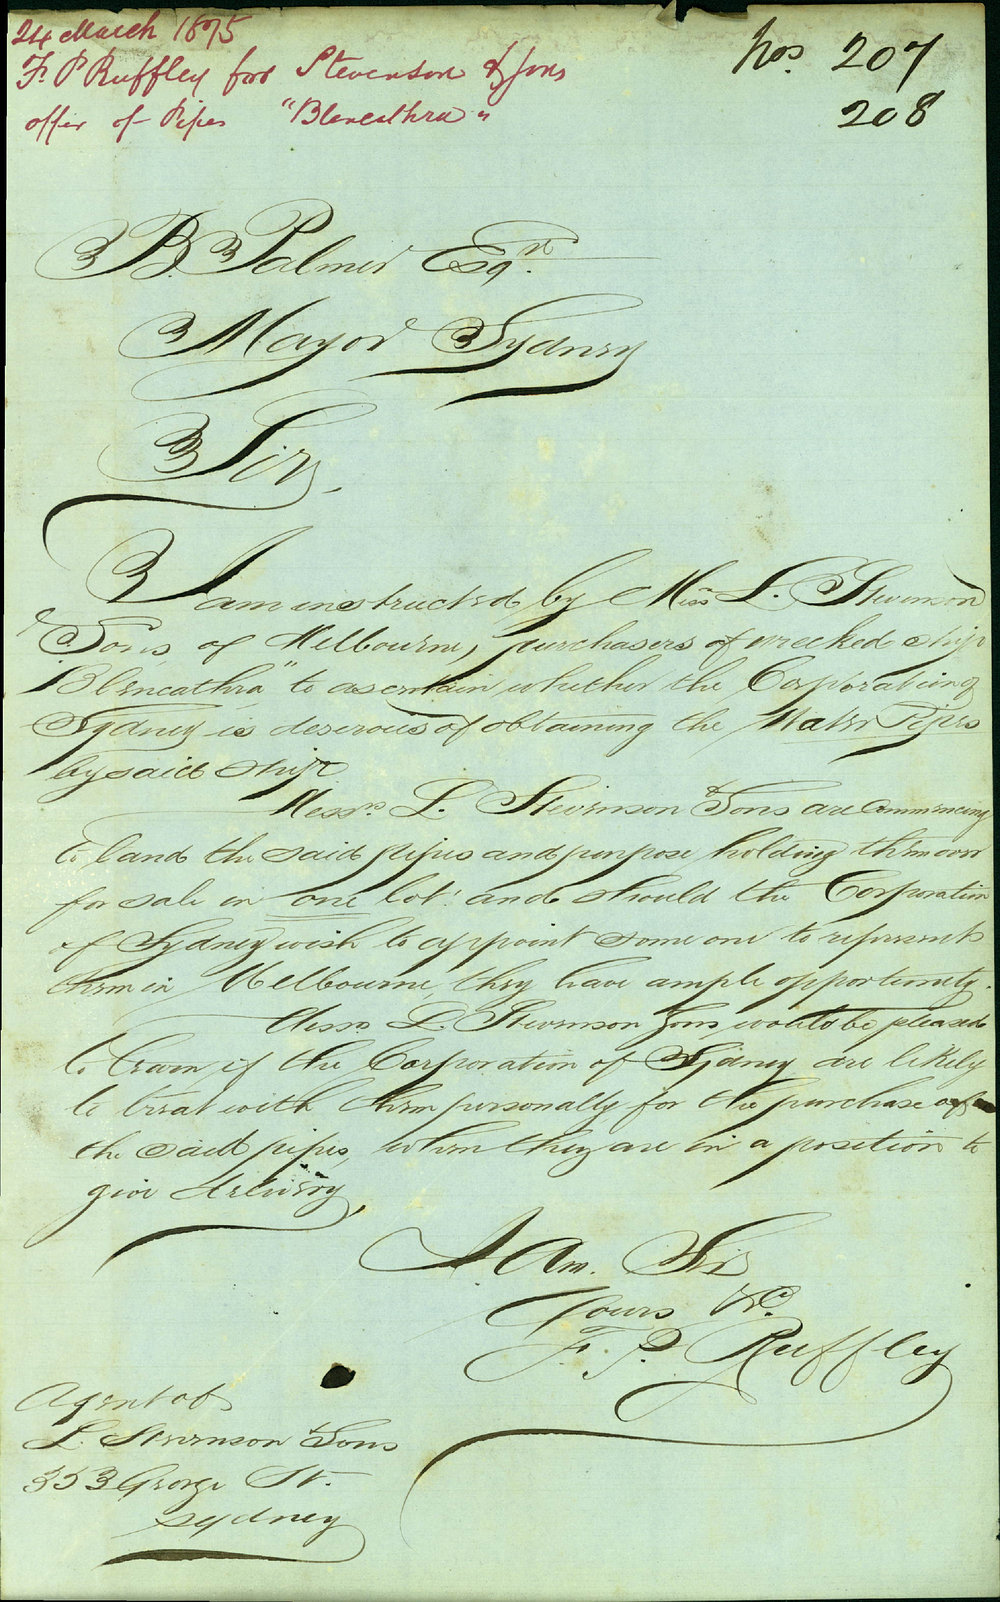 24 March 1875
F. P Ruffley for Stevenson & Sons
offer of Pipes "Blencathra"
Nos. 207
208
B. Palmer Esqr.
Mayor Sydney
Sir,
I am instructed by Messrs L. Stevenson
& Sons, of Melbourne, purchasers of wrecked ship
"Blencathra" to ascertain whether the Corporation of
Sydney is deserious of obtaining the Water Pipes
by said ship
Messrs. L. Stevenson & Sons are Commencing
to land the said pipes and purpose holding them over
for sale in one lot: and should the Corporation
of Sydney wish to appoint some one to represent
them in Melbourne, they have ample opportunity.
Messrs L. Stevenson & Sons, would be pleased
to learn, if the Corporation of Sydney are likely
to treat with them personally for the purchase of
the said pipes, when they are in a position to
give delivery,
I. Am. Sir
Yours &c.
F. P. Ruffley
Agent of
L. Stevenson & Sons
353 George St.
Sydney